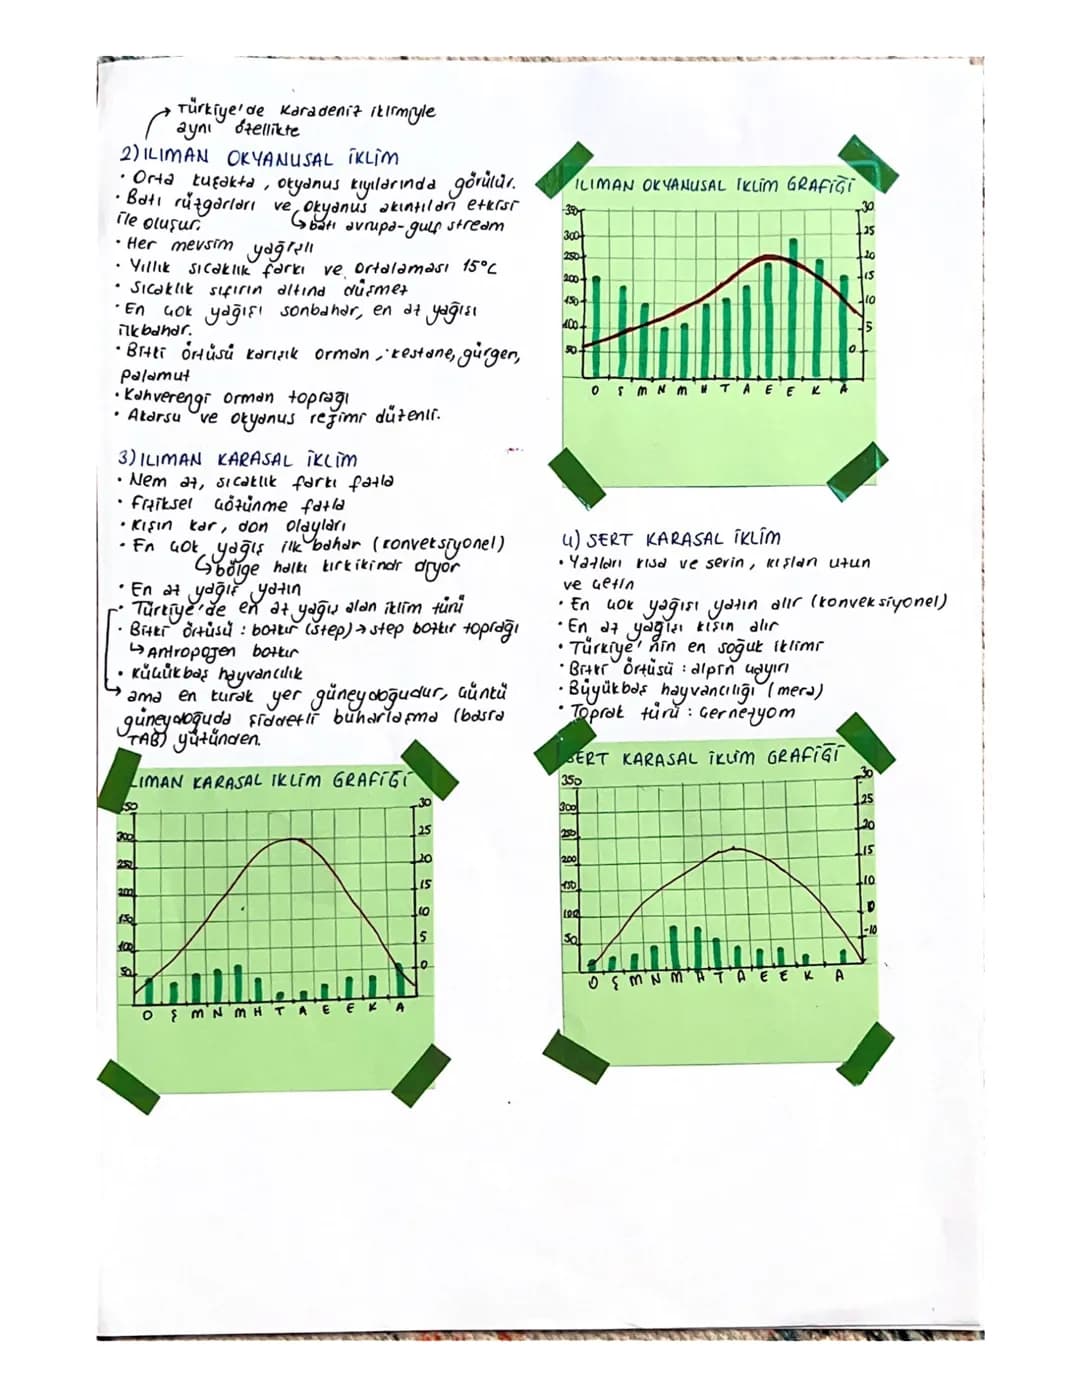 → Türkiye'de Karadeniz iklimiyle
aynı özellikte
2) ILIMAN OKYANUSAL İKLİM
• Orta kuşakta, okyanus kıyılarında görülür.
• Batı rüzgarları ve okyanus akıntıları etkisi
ile oluşur. ↳ batı avrupa-gulf stream
• Her mevsim yağışlı
• Yıllık sıcaklık farkı ve ortalaması 15°C
• Sıcaklık sıfırın altına düşmez
• En çok yağışı sonbahar, en az yağışı
ilkbahar.
• Bitki örtüsü karışık orman, kestane, gürgen,
palamut
• Kahverengi orman toprağı
• Akarsu ve okyanus rejimi düzenli.
3) ILIMAN KARASAL İKLİM
• Nem az, sıcaklık farkı fazla
• Fiziksel çözünme fazla
• Kışın kar, don olayları
• En çok yağış ilk bahar (konveksiyonel)
↳ bölge halkı kırkikindi diyor
• En az yağış yazın
• Türkiye'de en az yağış alan iklim türü
• Bitki örtüsü : bozkır (step) → step bozkır toprağı
↳ Antropojen bozkır
• Küçükbaş hayvancılık
→ ama en kurak yer güneydoğudur, çünkü
güneydoğuda şiddetli buharlaşma (basra
TAB) yüzünden.
ILIMAN KARASAL İKLİM GRAFİĞİ
350 300 250 200 150 100 50
30 25 20 15 10 5 0
O Ş M N M H T A E E K A
ILIMAN OKYANUSAL İKLİM GRAFİĞİ
350 300 250 200 150 100 50
30 25 20 15 10 5 0
O Ş M N M H T A E E K A
4) SERT KARASAL İKLİM
• Yazları kısa ve serin, kışları uzun
ve çetin
• En çok yağışı yazın alır (konveksiyonel)
• En az yağışı kışın alır
• Türkiye'nin en soğuk iklimi
• Bitki örtüsü : alpin çayırı
• Büyükbaş hayvancılığı (mera)
• Toprak türü : Çernezyom
SERT KARASAL İKLİM GRAFİĞİ
350 300 250 200 150 100 50
30 25 20 15 10 0 -10
O Ş M N M H T A E E K A